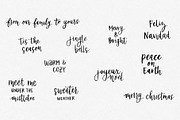 from our family, to yours
'tis the
season
jingle
bells
Merry
& Bright
Feliz
Navidad
WARM &
COZY
peace
on
EARTH
meet me
UNDER THE
mistletoe
sweater
WEATHER
joyeux
noel
merry christmas